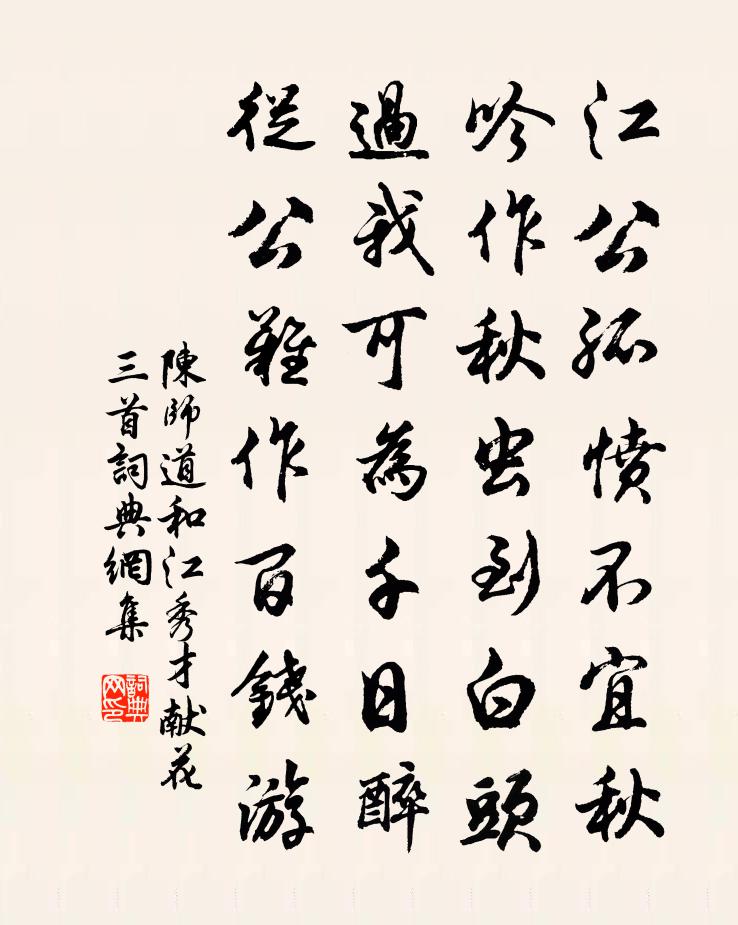 江公孤憤不宜秋
吟作秋虫到白頭
過我可為千日醉
從公難作百錢游
陳師道和江秀才献花
三首詞典網集
詞典
网印